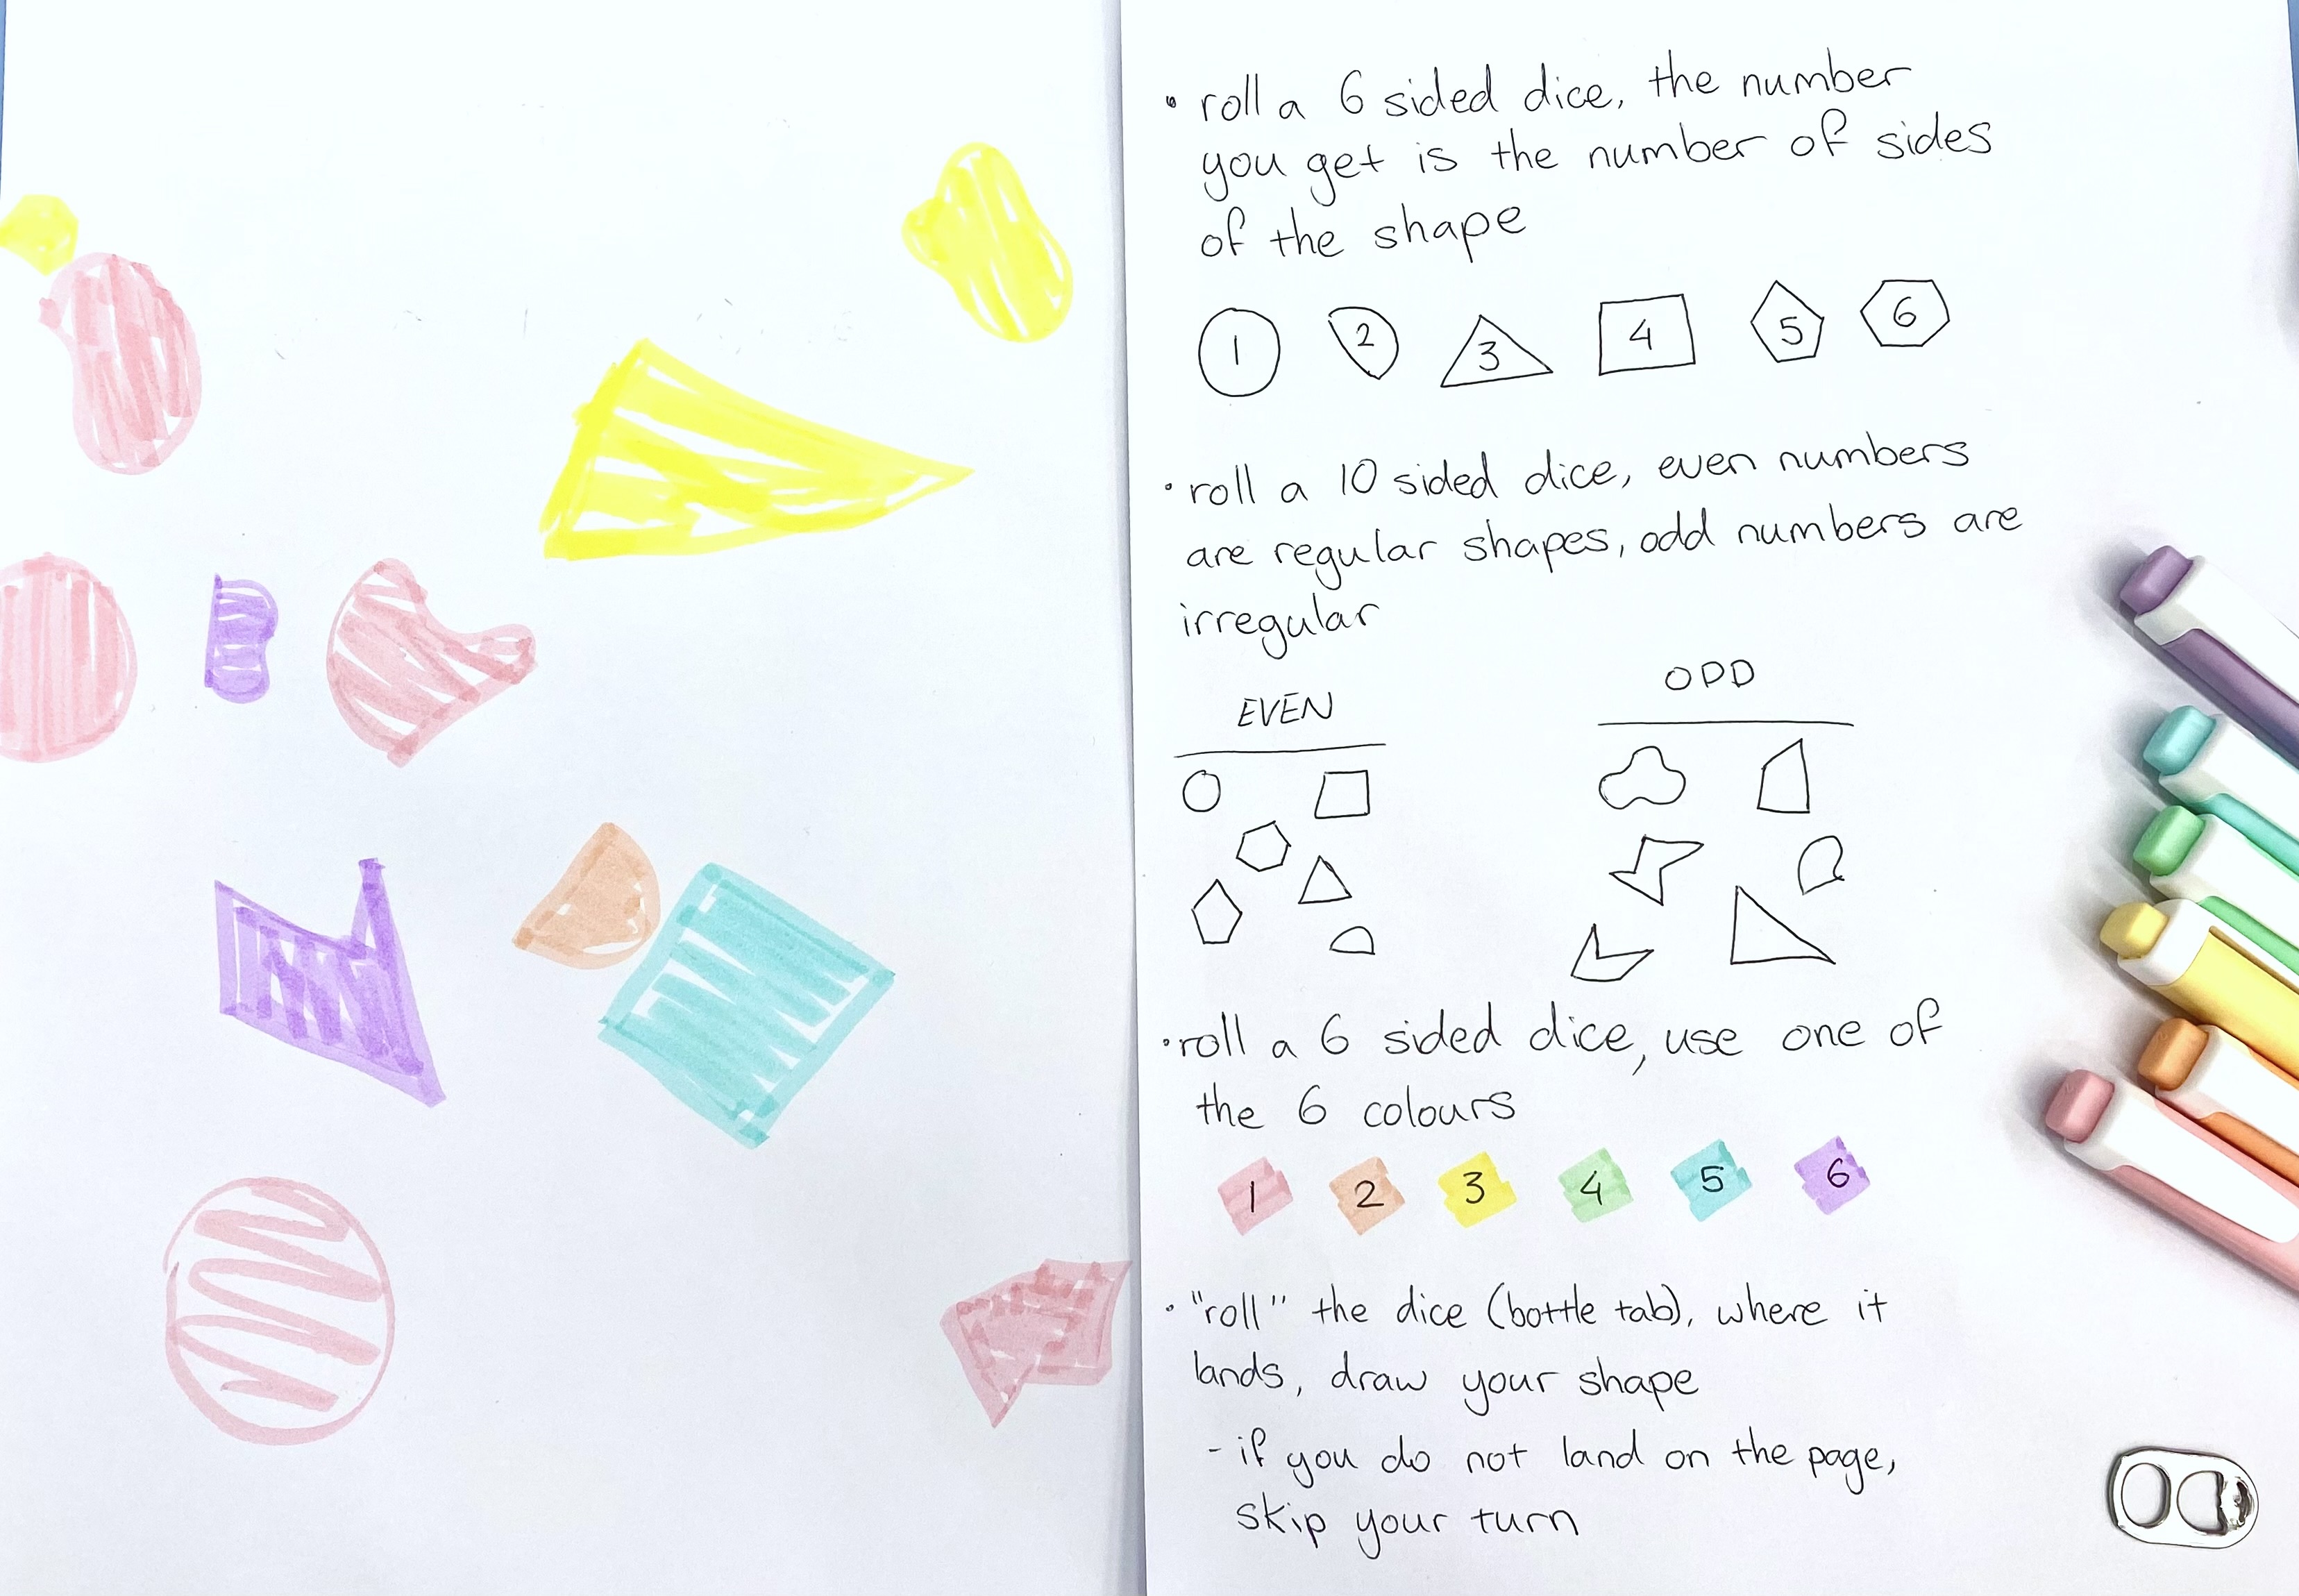 • roll a 6 sided dice, the number
you get is the number of sides
of the shape
1 2 3 4 5 6
• roll a 10 sided dice, even numbers
are regular shapes, odd numbers are
irregular
EVEN
ODD
• roll a 6 sided dice, use one of
the 6 colours
1 2 3 4 5 6
• "roll" the dice (bottle tab), where it
lands, draw your shape
- if you do not land on the page,
skip your turn